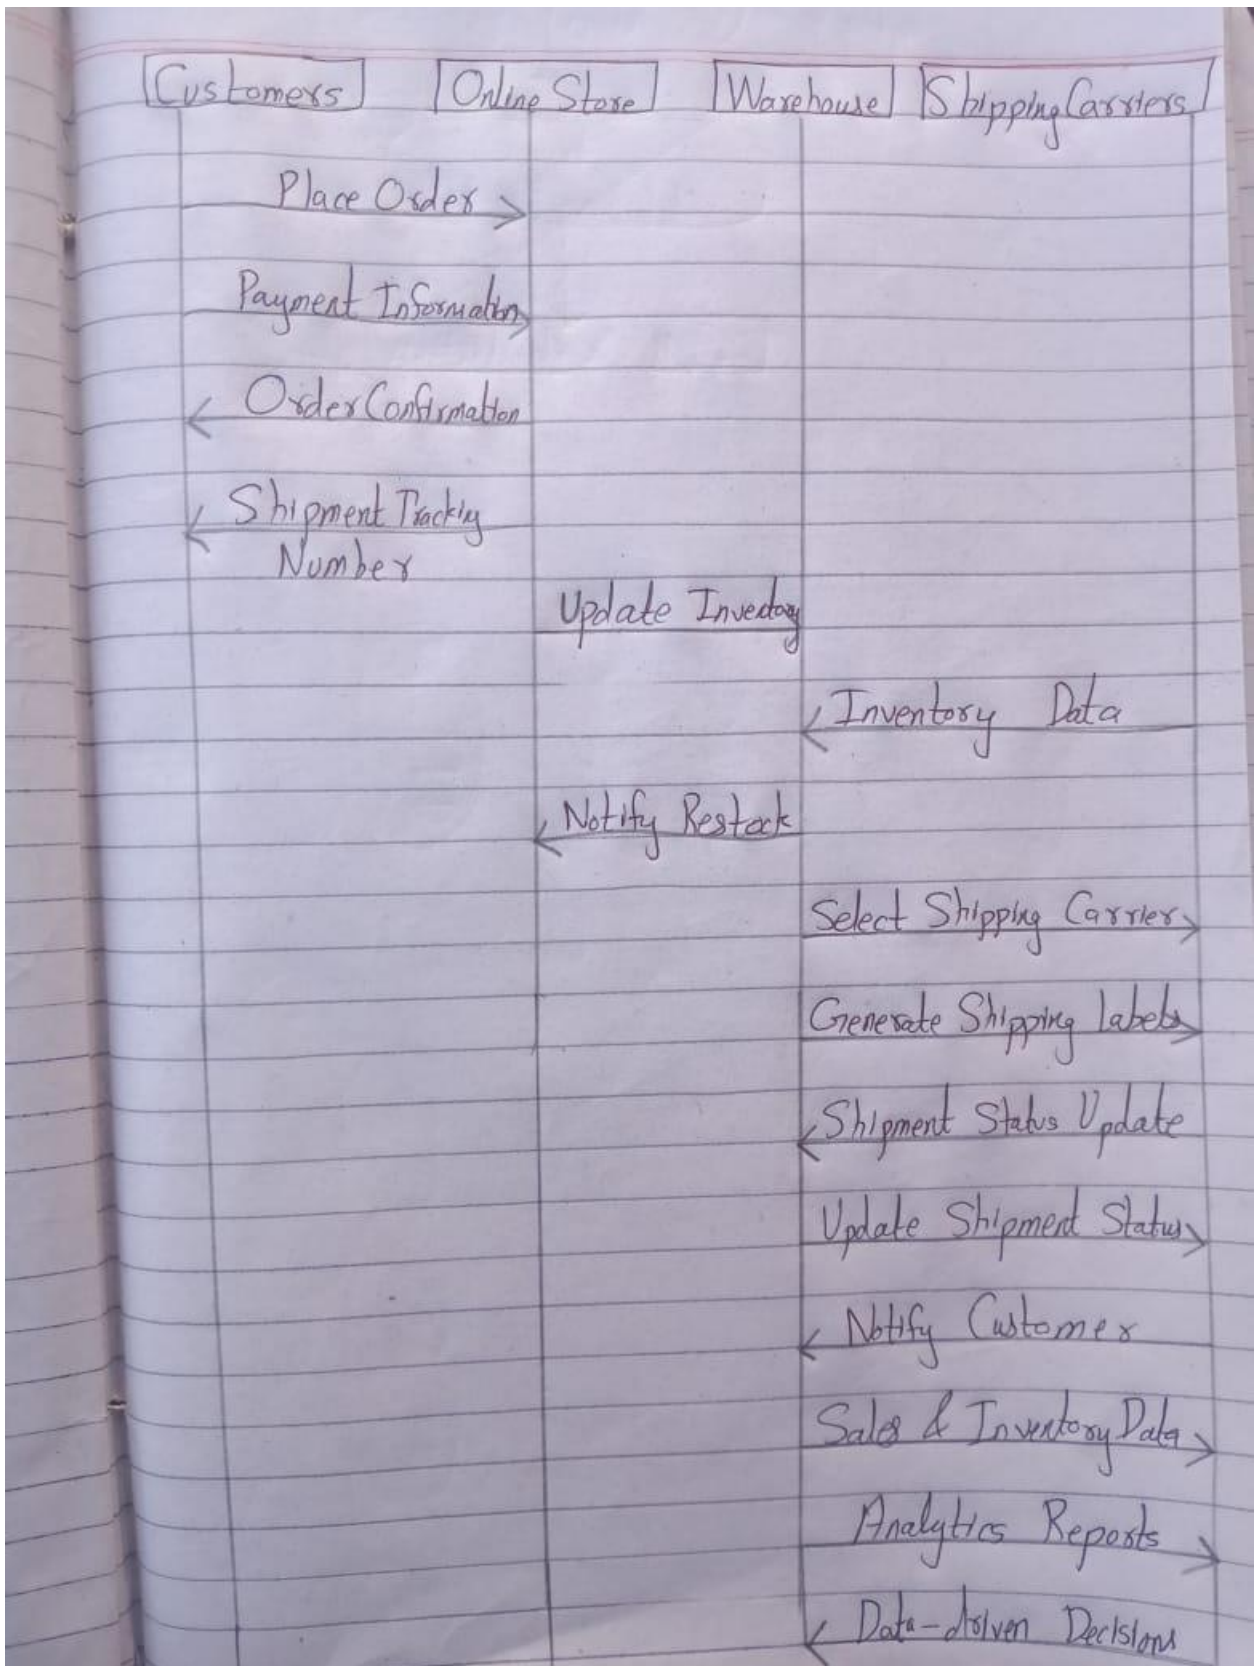 Customers Online Store Warehouse Shipping Carriers
Place Order
Payment Information
Order Confirmation
Shipment Tracking
Number
Update Inventory
Inventory Data
Notify Restock
Select Shipping Carrier
Generate Shipping Labels
Shipment Status Update
Update Shipment Status
Notify Customer
Sales & Inventory Data
Analytics Reports
Data-driven Decisions